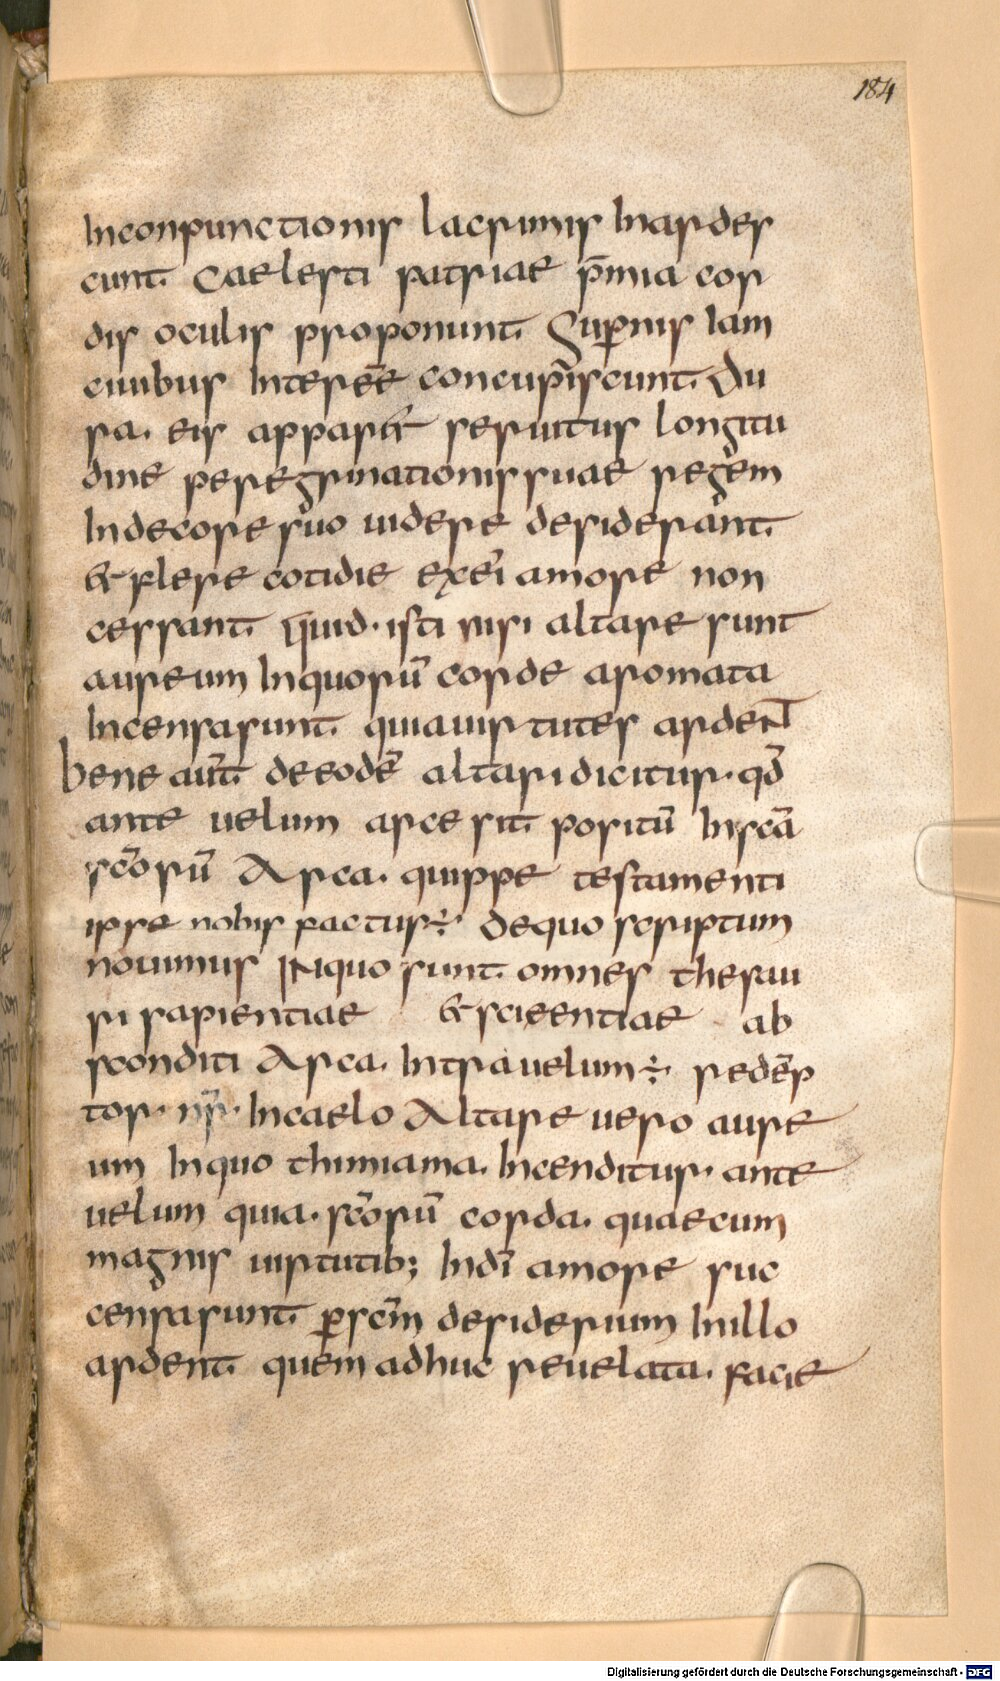 184
Inconpunctionis lacrimis Inardes
cunt. Caelesti patriae p̄mia cor
dis oculis proponunt. Sup̄nis Iam
ciuibus Interee᷒ concup̄iscunt. Du
ra. eis apparet seruitus longitu
dine peregrinationis suae regem
Indecore suo uidere desiderant.
et flere cotidie exei᷒ amore non
cessant. quid. isti nisi altare sunt
aureum Inquorū corde aromata
Incensa sunt. quia uirtutes ardent
bene aut̄. deeodē altari dicitur. qd̄
ante uelum arce sit. positū In sc̄a
sc̄orū Arca. quippe testamenti
ipse nobis factus ÷ dequo scriptum
nouimus Inquo sunt. omnes thesau
ri sapientiae et scientiae ab
sconditi Arca. Intra uelum ÷ redēp
tor. nr̄. Incaelo Altare uero aure
um Inquo thimiama. Incenditur. ante
uelum quia. sc̄orū corda. quaecum
magnis uirtutib; Indī amore suc
censa sunt. p̄ sc̄m desiderium Inillo
ardent. quem adhuc reuelata. facie
Digitalisierung gefördert durch die Deutsche Forschungsgemeinschaft - DFG